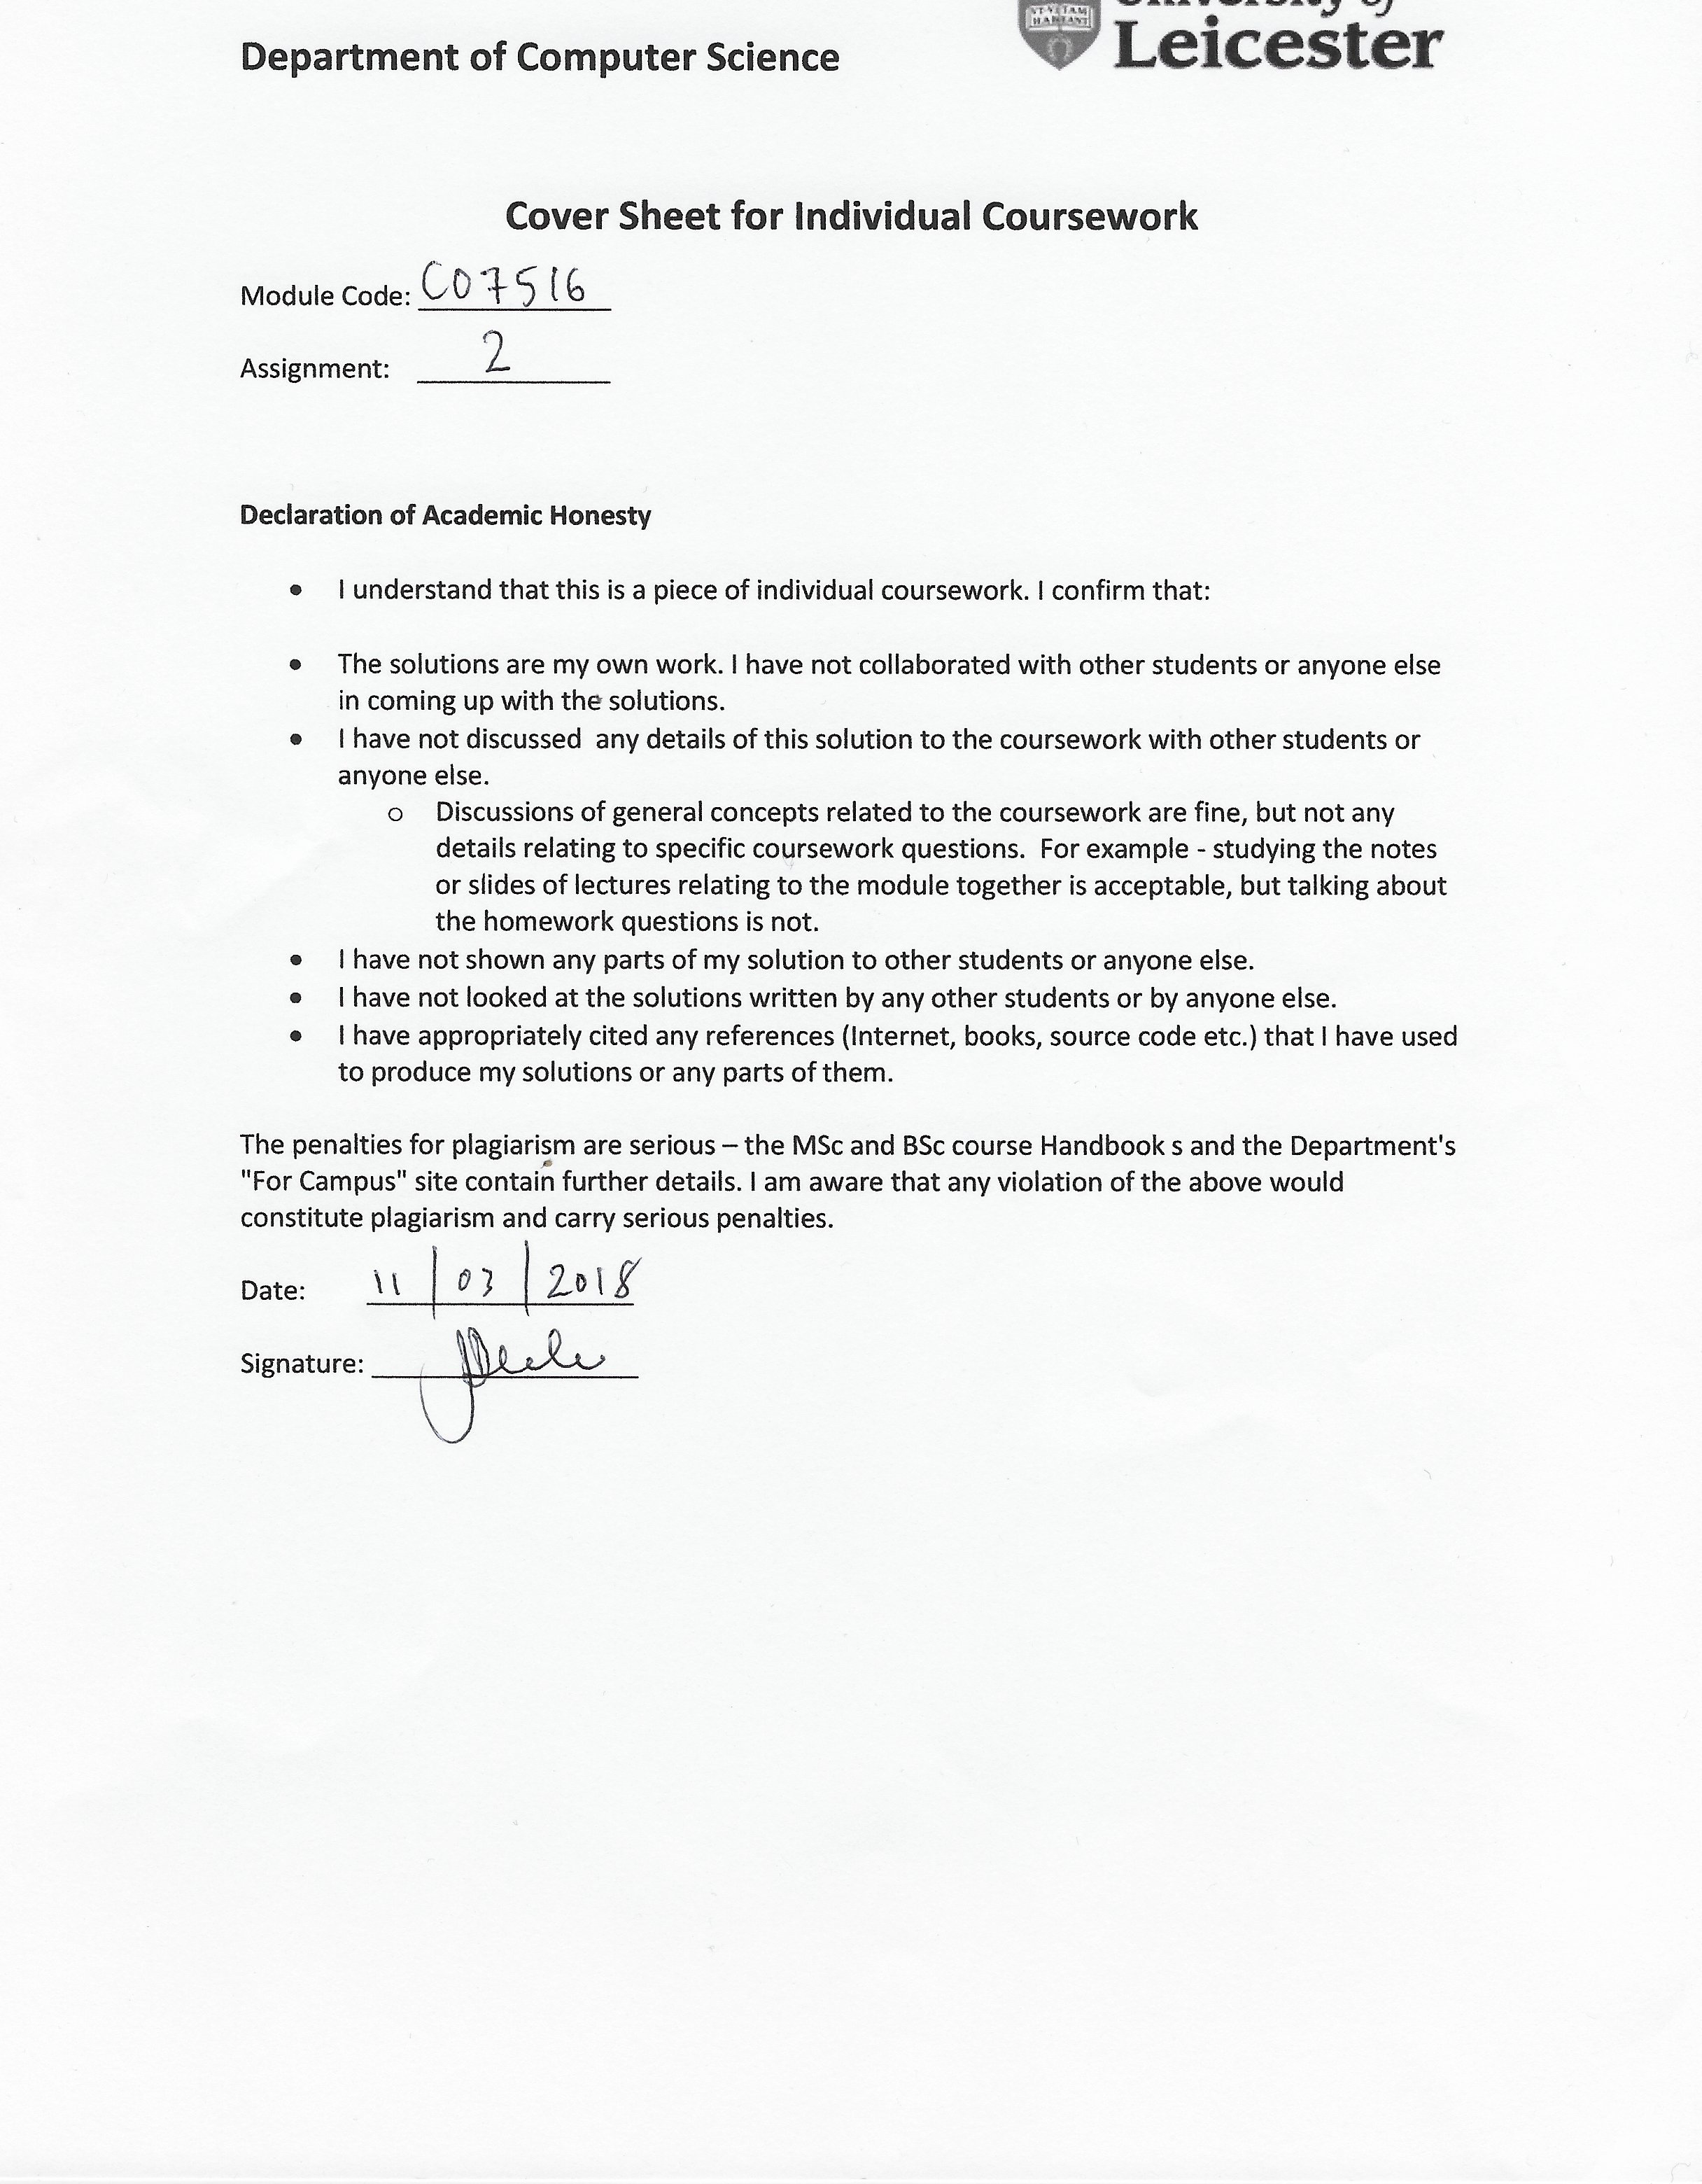 University of
Department of Computer Science
Leicester
Cover Sheet for Individual Coursework
Module Code: CO7516
Assignment: 2
Declaration of Academic Honesty
• I understand that this is a piece of individual coursework. I confirm that:
• The solutions are my own work. I have not collaborated with other students or anyone else
in coming up with the solutions.
• I have not discussed  any details of this solution to the coursework with other students or
anyone else.
o Discussions of general concepts related to the coursework are fine, but not any
details relating to specific coursework questions.  For example - studying the notes
or slides of lectures relating to the module together is acceptable, but talking about
the homework questions is not.
• I have not shown any parts of my solution to other students or anyone else.
• I have not looked at the solutions written by any other students or by anyone else.
• I have appropriately cited any references (Internet, books, source code etc.) that I have used
to produce my solutions or any parts of them.
The penalties for plagiarism are serious – the MSc and BSc course Handbook s and the Department's
"For Campus" site contain further details. I am aware that any violation of the above would
constitute plagiarism and carry serious penalties.
Date: 11/03/2018
Signature: